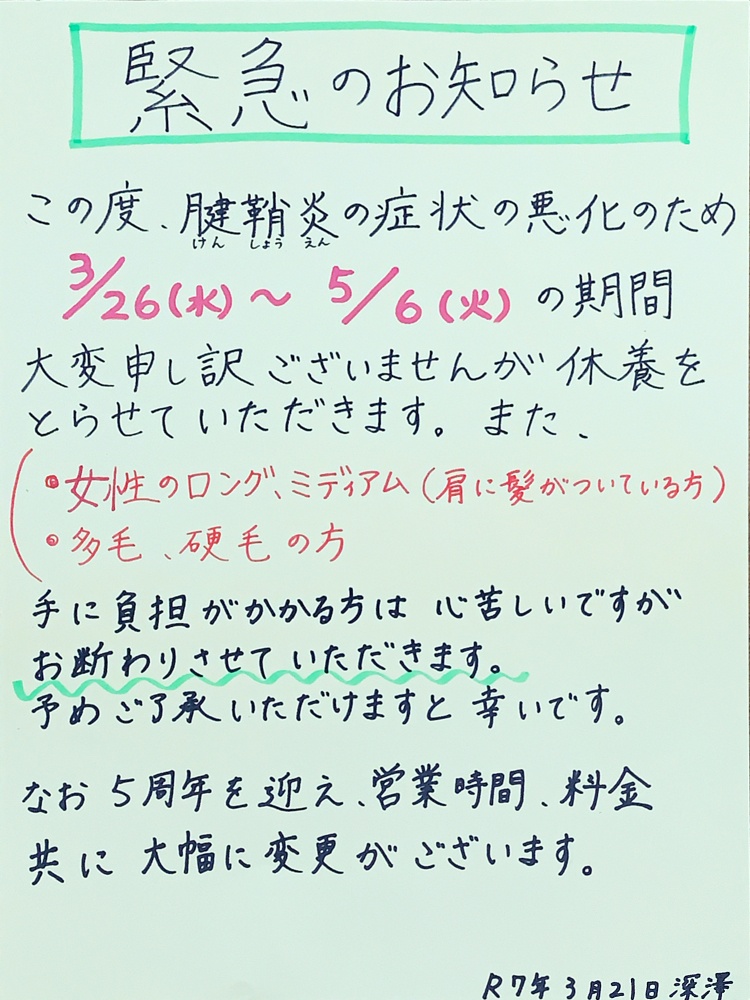 緊急のお知らせ
この度、腱鞘炎の症状の悪化のため
けん しょう えん
3/26(水)～ 5/6(火)の期間
大変申し訳ございませんが休養を
とらせていただきます。また、
・女性のロング、ミディアム(肩に髪がついている方)
・多毛、硬毛の方
手に負担がかかる方は心苦しいですが
お断わりさせていただきます。
予めご了承いただけますと幸いです。
なお5周年を迎え、営業時間、料金
共に大幅に変更がございます。
R7年3月21日深澤